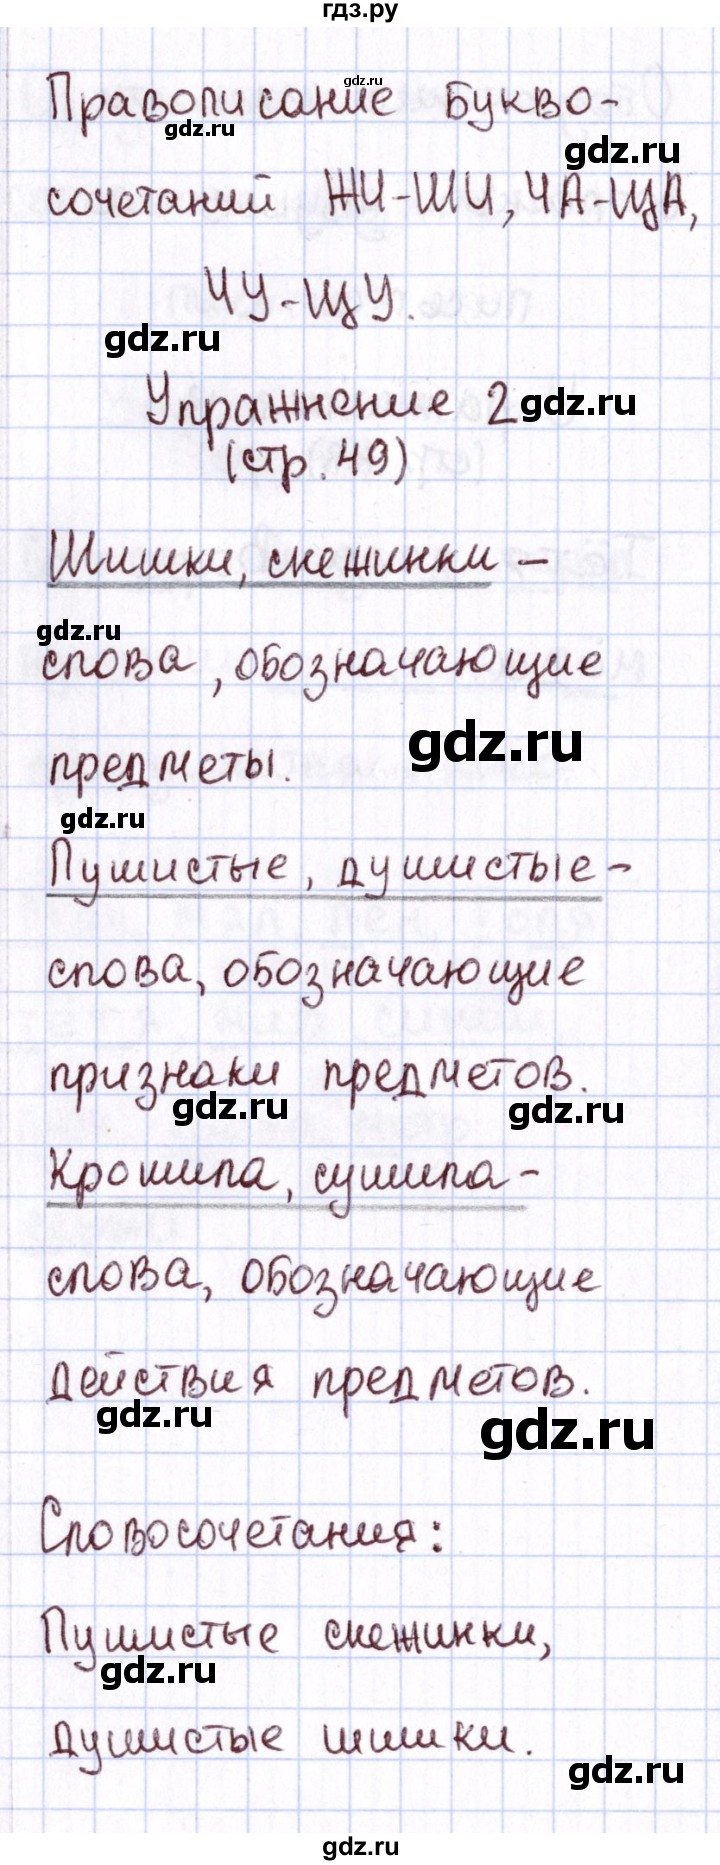 гдз.ру
gdz.ru
Правописание букво-
gdz.ru
gdz.ru
сочетаний ЖИ-ШИ, ЧА-ЩА,
ЧУ-ЩУ.
gdz.ru
Упражнение 2
gdz.ru
(стр. 49)
Шишки, снежинки –
gdz.ru
слова, обозначающие
gdz.ru
предметы.
gdz.ru
Пушистые, душистые –
слова, обозначающие
признаки предметов.
gdz.ru
gdz.ru
Крошила, сушила –
слова, обозначающие
действия предметов.
gdz.ru
gdz.ru
Словосочетания:
Пушистые снежинки,
gdz.ru
душистые шишки.
gdz.ru
gdz.ru